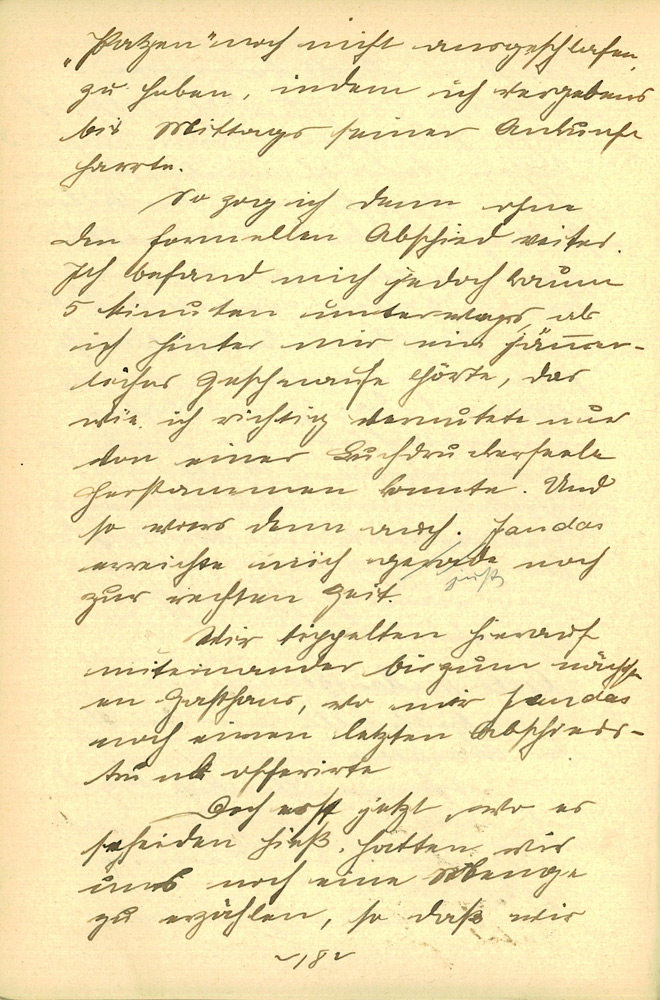 „Patzen" noch nicht ausgeschlafen
zu haben, indem ich vergebens
bis Mittags seiner Ankunft
harrte.
So zog ich denn ohne
den formellen Abschied weiter.
Ich befand mich jedoch kaum
5 Minuten unterwegs, als
ich hinter mir ein jämmer-
liches Geschnaufe hörte, das
wie ich richtig vermutete nur
von einer Buchdruckerseele
herstammen konnte. Und
so wars denn auch. Jandas
erreichte mich gerade noch
just
zur rechten Zeit.
Wir tippelten hierauf
miteinander bis zum nächst-
en Gasthaus, wo mir Jandas
noch einen letzten Abschieds-
trunk offerirte
Doch erst jetzt, wo es
scheiden hieß, hatten wir
uns noch eine Menge
zu erzählen, so daß wir
~18~